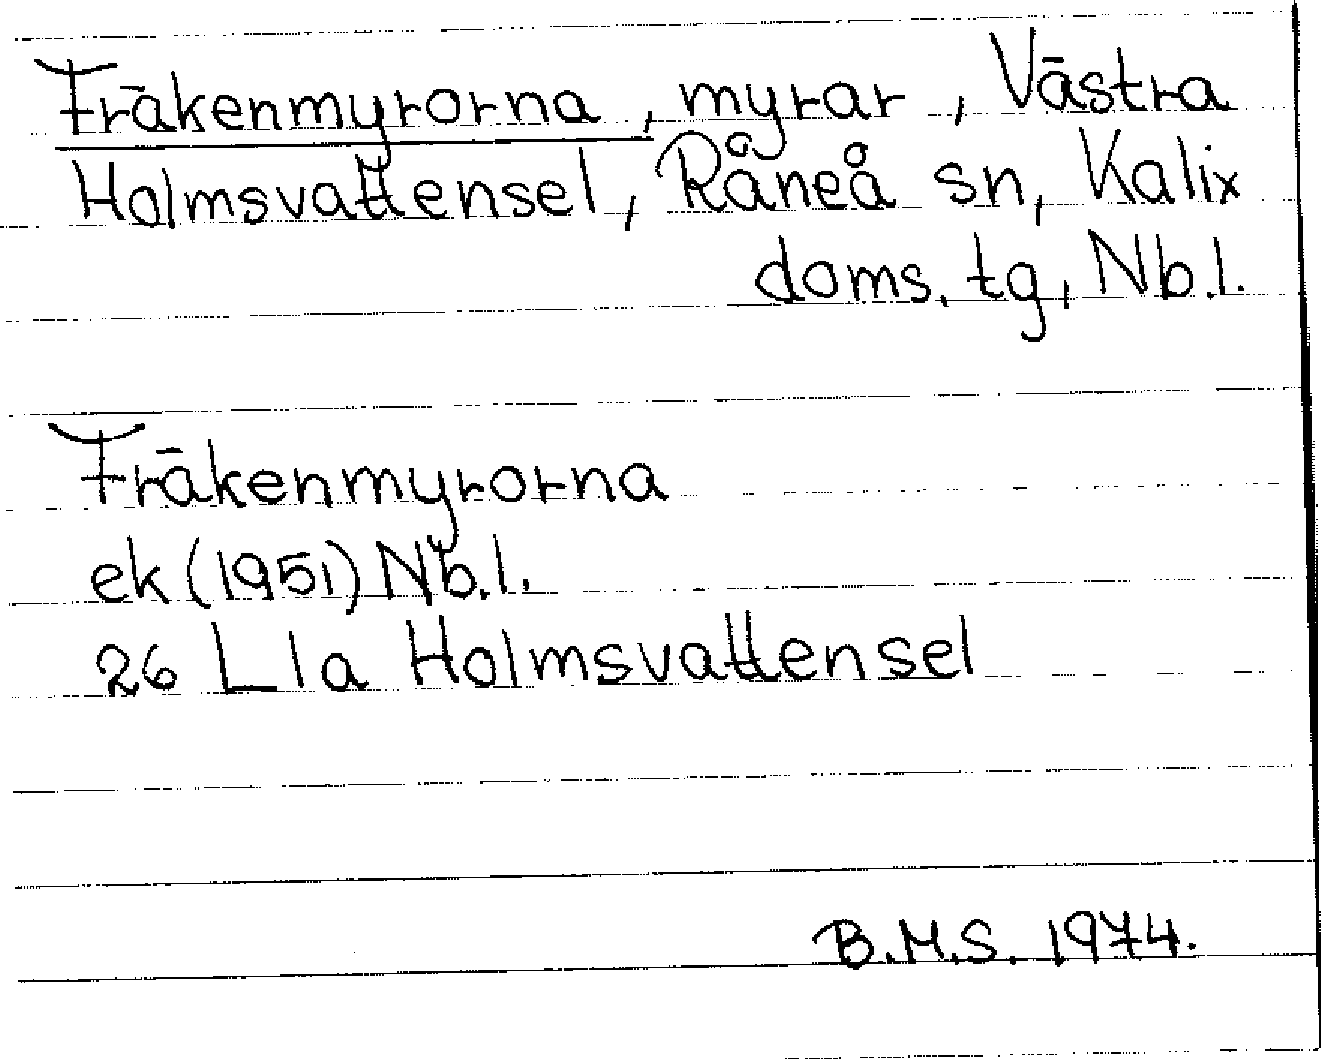 Fräkenmyrorna, myrar, Västra
Holmsvattensel, Råneå sn, Kalix
doms. tg, Nb.l.
Fräkenmyrorna
ek (1951) Nb.l.
26 L 1a Holmsvattensel
B.M.S. 1974.